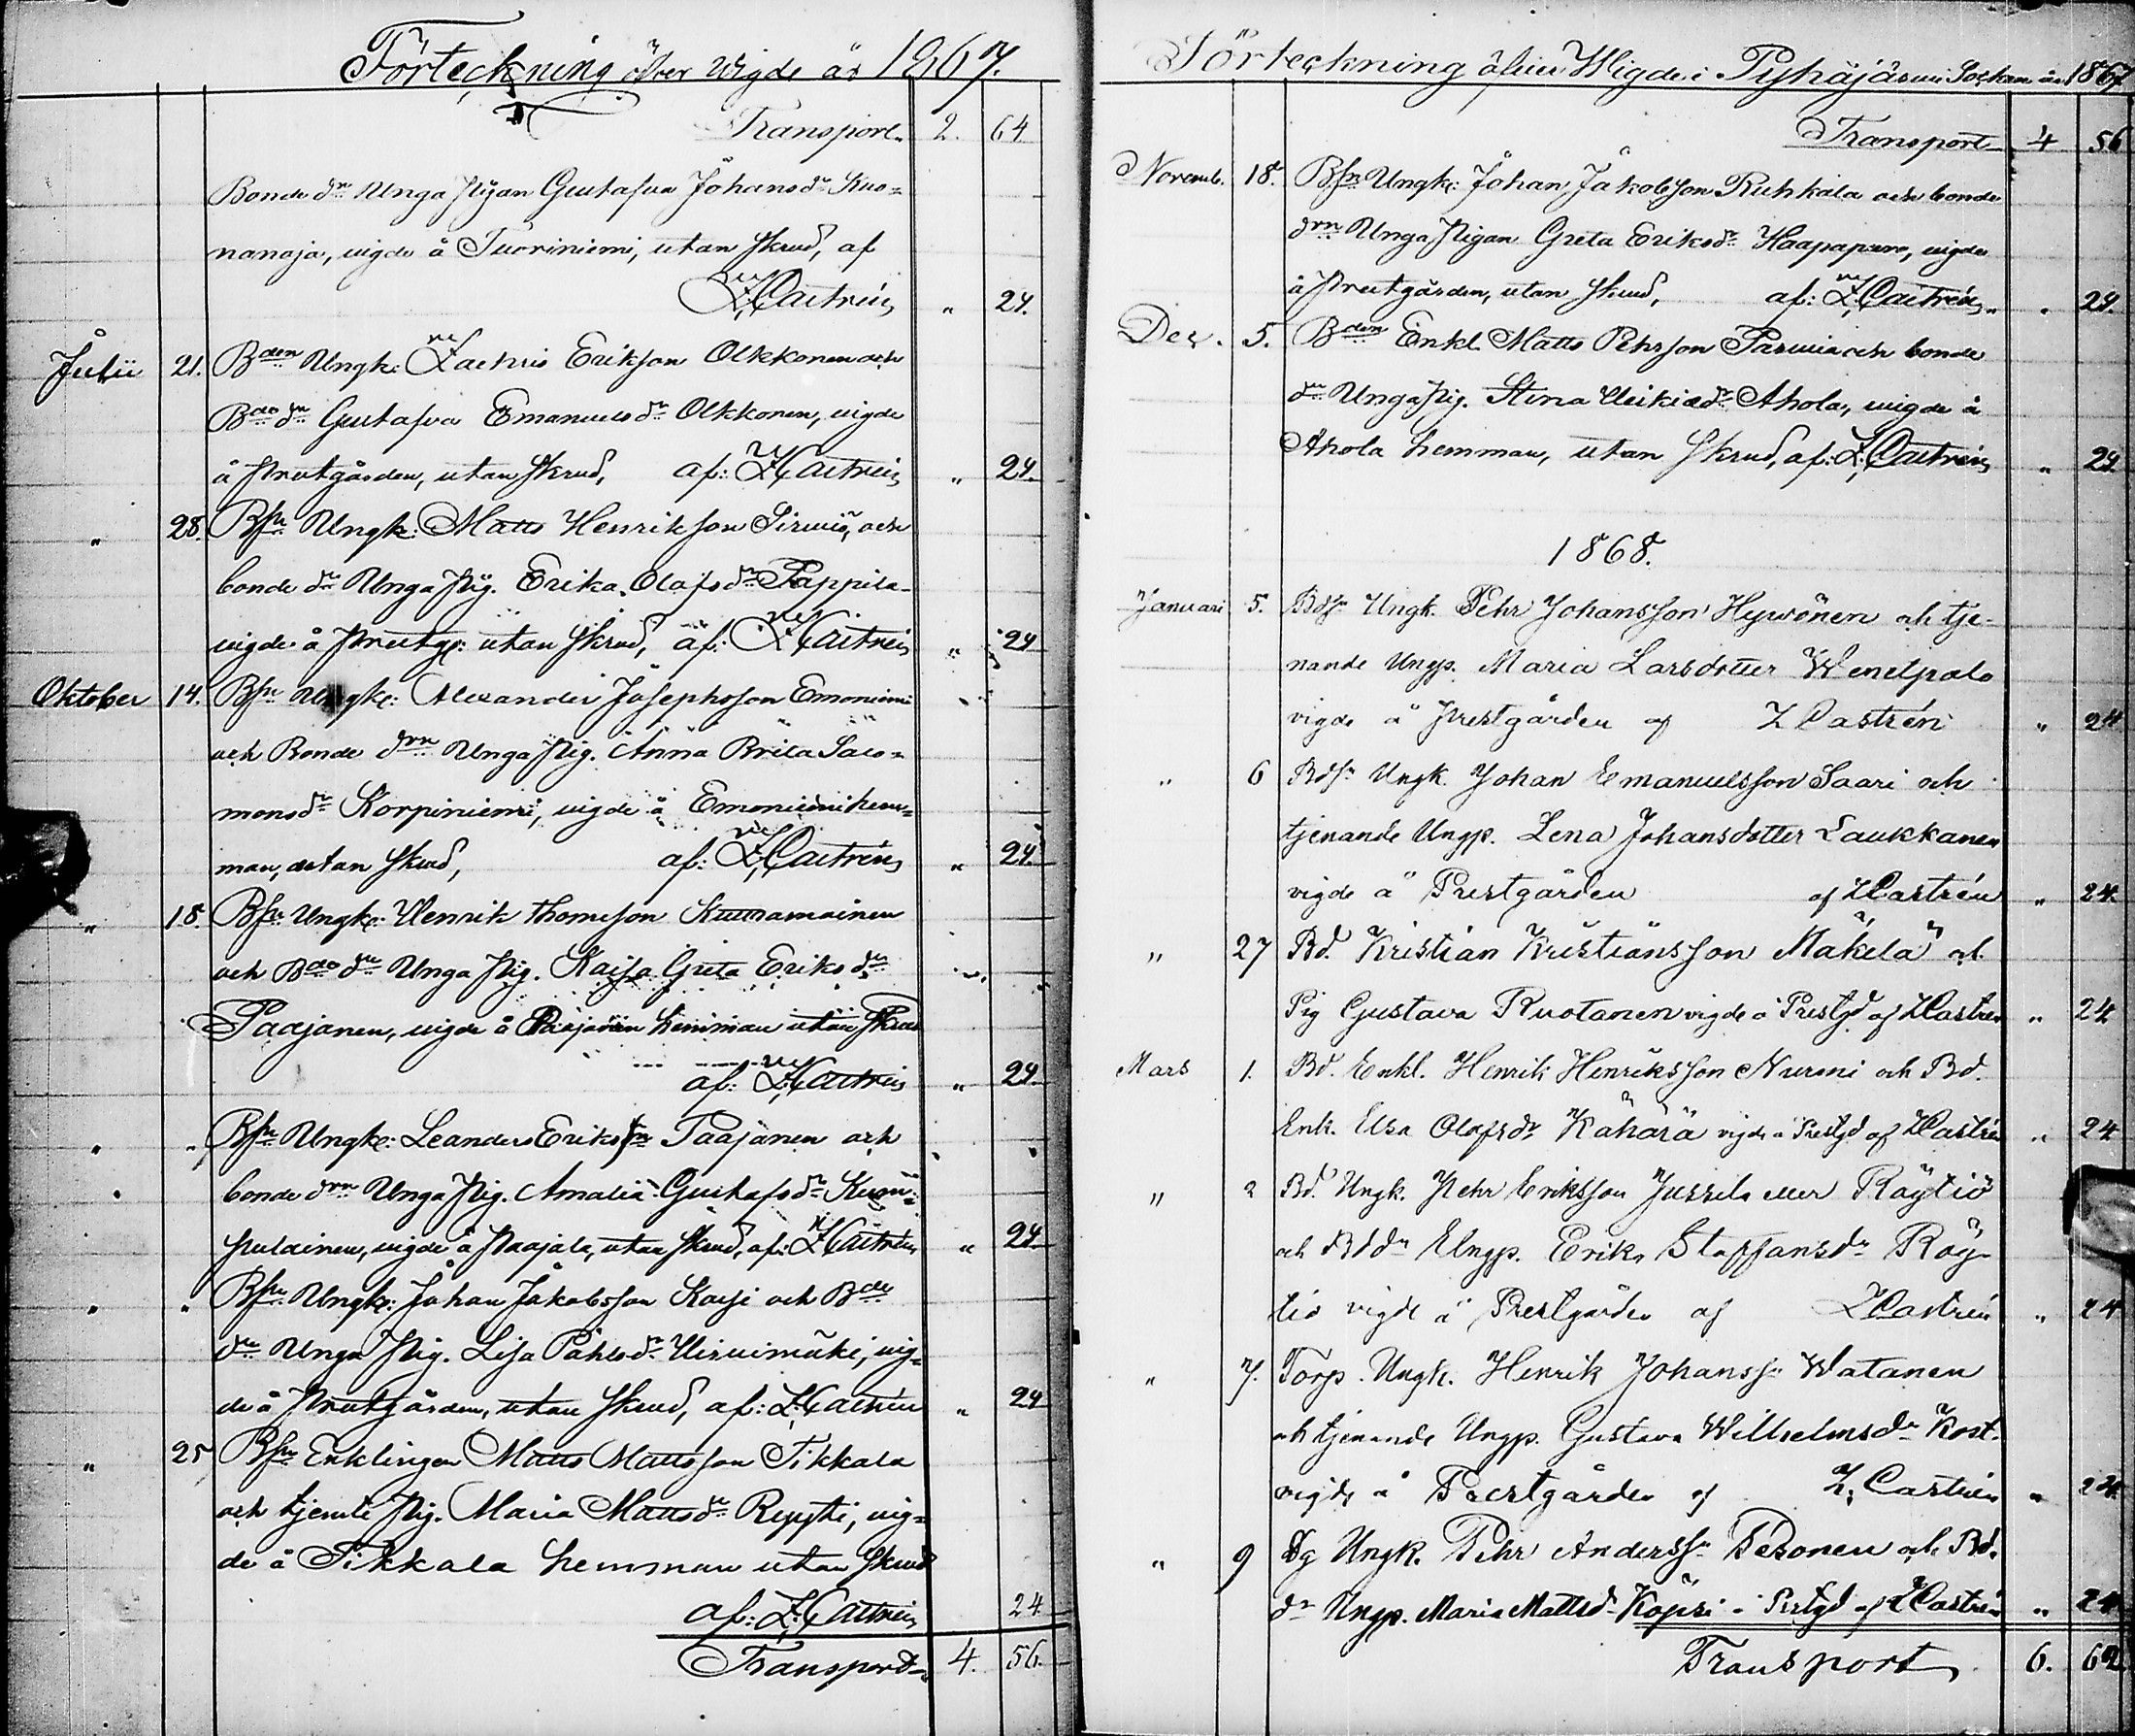 Förteckning öfver Wigde år 1867.
Transport. 2. 64
Bonde dn Unga Pigan Gustafva Johansdr Kuo=
nanoja, vigde å Tuoriniemi, utan skrud, af
Z. Castrén " 24.
Julii 21. Bden Ungk: Zachris Erikson Olkkonen och
Bde dn Gustafva Emanuelsdr Olkkonen, vigde
å Prestgården, utan skrud, af: Z. Castrén " 24.
" 28. Bsn Ungk: Matts Henrikson Sirviö, och
bonde dn Unga Pig. Erika Olofsdr Pappila
vigde å Prestg: utan skrud, af: Z. Castrén " 24
Oktober 14. Bsn Ungk: Alexander Josephsson Emoniemi
och Bonde drn Unga Pig. Anna Brita Salo=
monsdr Korpiniemi, vigde å Emoniemi hem=
man, utan skrud, af: Z. Castrén " 24.
" 18. Bsn Ungk: Henrik Thomsson Kumamainen
och Bde dn Unga Pig. Kaisa Greta Eriksdr
Paajanen, vigde å Paajanen hemman utan skrud
af: Z. Castrén " 24.
" " Bsn Ungk: Leanders Eriksson Paajanen och
bonde drn Unga Pig. Amalia Gustafsdr Kum=
pulainen, vigde å Paajala, utan skrud, af: Z. Castrén " 24.
" " Bsn Ungk: Johan Jakobsson Korsi och Bde
dn Unga Pig. Lisa Påhlsdr Hirvimäki, vig=
de å Prestgården, utan skrud, af: Z. Castrén " 24
" 25 Bsn Enklingen Matts Mattsson Tikkala
och tjente Pig. Maria Mattsdr Repsti, vig=
de å Tikkala hemman utan skrud
af: Z. Castrén 24
Transport 4. 56.
Förteckning öfver Wigde i Pyhäjärvi Sockan år 1867
Transport 4 56
Novemb. 18. Bsn Ungk: Johan Jakobson Ruhkala och bonde
drn Unga Pigan Greta Eriksdr Haapapuro, vigde
å Prestgården, utan skrud, af: Z. Castrén " 24.
Dec. 5. Bden Enkl. Matts Pehrson Parvia och bonde
dn Unga Pig. Stina Heikisdr Ahola, vigde å
Ahola hemman, utan skrud, af: Z. Castrén " 24
1868.
Januari 5. Bdsn Ungk. Pehr Johansson Hyvönen och tje-
nande Ungp. Maria Larsdotter Wenetpalo
vigde å Prestgården af Z Castrén " 24
" 6 Bdsn Ungk. Johan Emanuelsson Saari och
tjenande Ungp. Lena Johansdotter Laukkanen
vigde å Prestgården af Z Castrén " 24.
" 27 Bd. Kristian Kristiansson Mäkelä och
Pig Gustava Ruotanen vigde å Prestgd af Z Castrén " 24
Mars 1. Bd. Enkl. Henrik Henriksson Nurmi och Bd.
Enk. Elsa Olofsdr Kähärä vigde å Prestgd af Z Castrén " 24
" 2 Bd. Ungk. Pehr Eriksson Jussila eller Röytiö
och Bd dn Ungp. Erika Staffansdr Röy-
tiö vigde å Prestgården af Z Castrén " 24
" 7. Torp. Ungk. Henrik Johanssn Watanen
och tjenande Ungp. Gustava Wilhelmsdr Kost.
vigde å Prestgården af Z. Castrén " 24.
" 9 Dg Ungk. Pehr Anderssn Pesonen och Bd.
dr Ungp. Maria Mattsdr Köpsi å Prstgd af Z Castrén " 24
Transport 6. 62